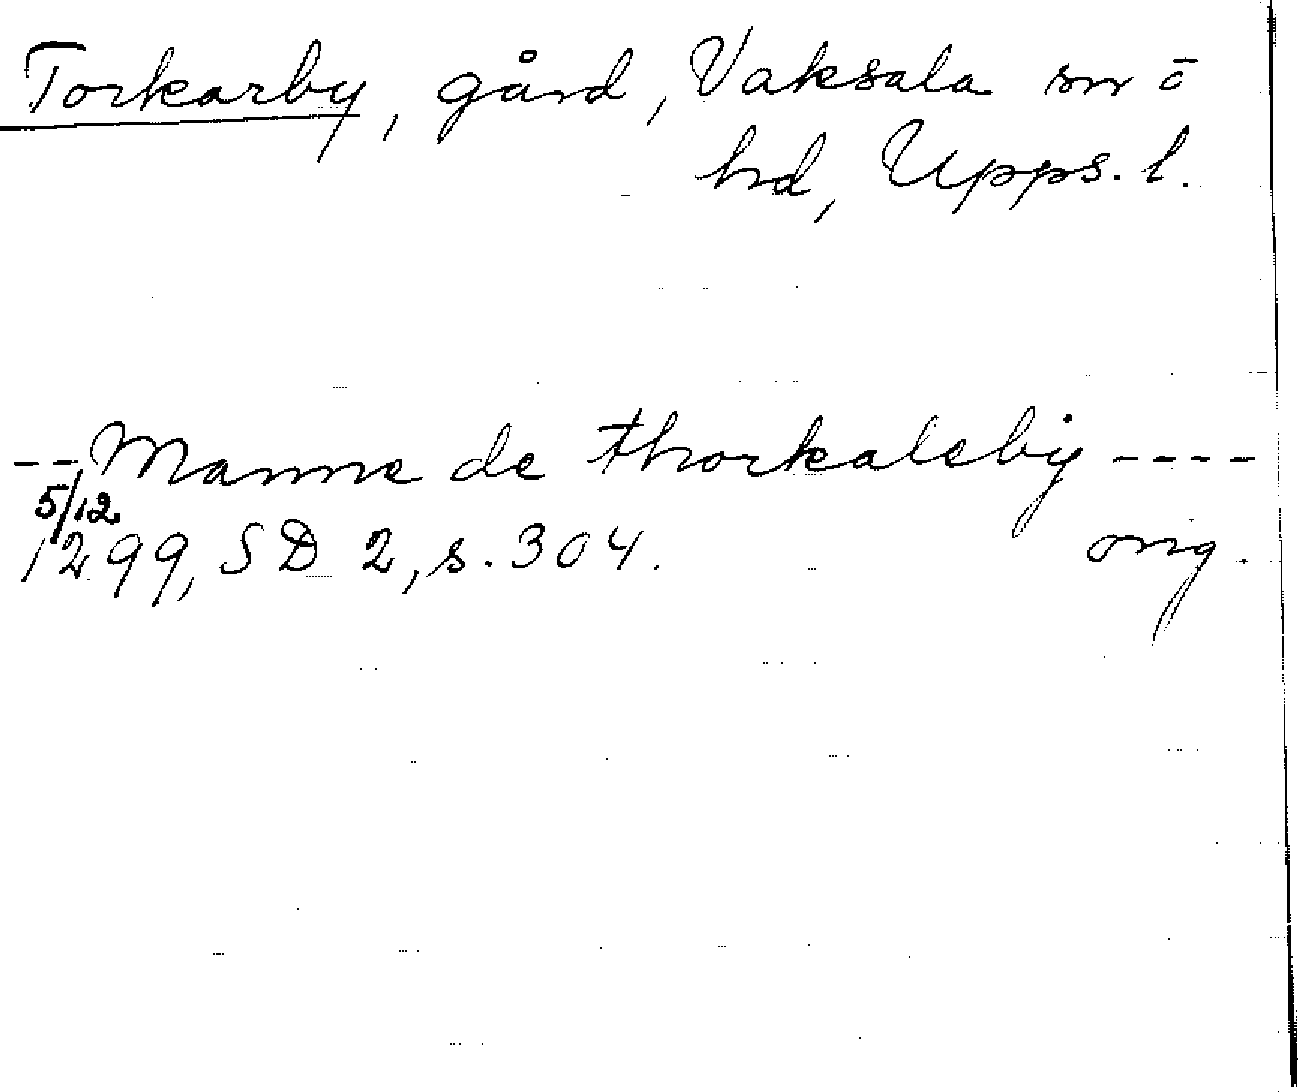 Torkarby, gård, Vaksala sn o
hd, Upps. l.
-- Manne de thorkaleby ----
5/12
1299, SD 2, s. 304. orig.